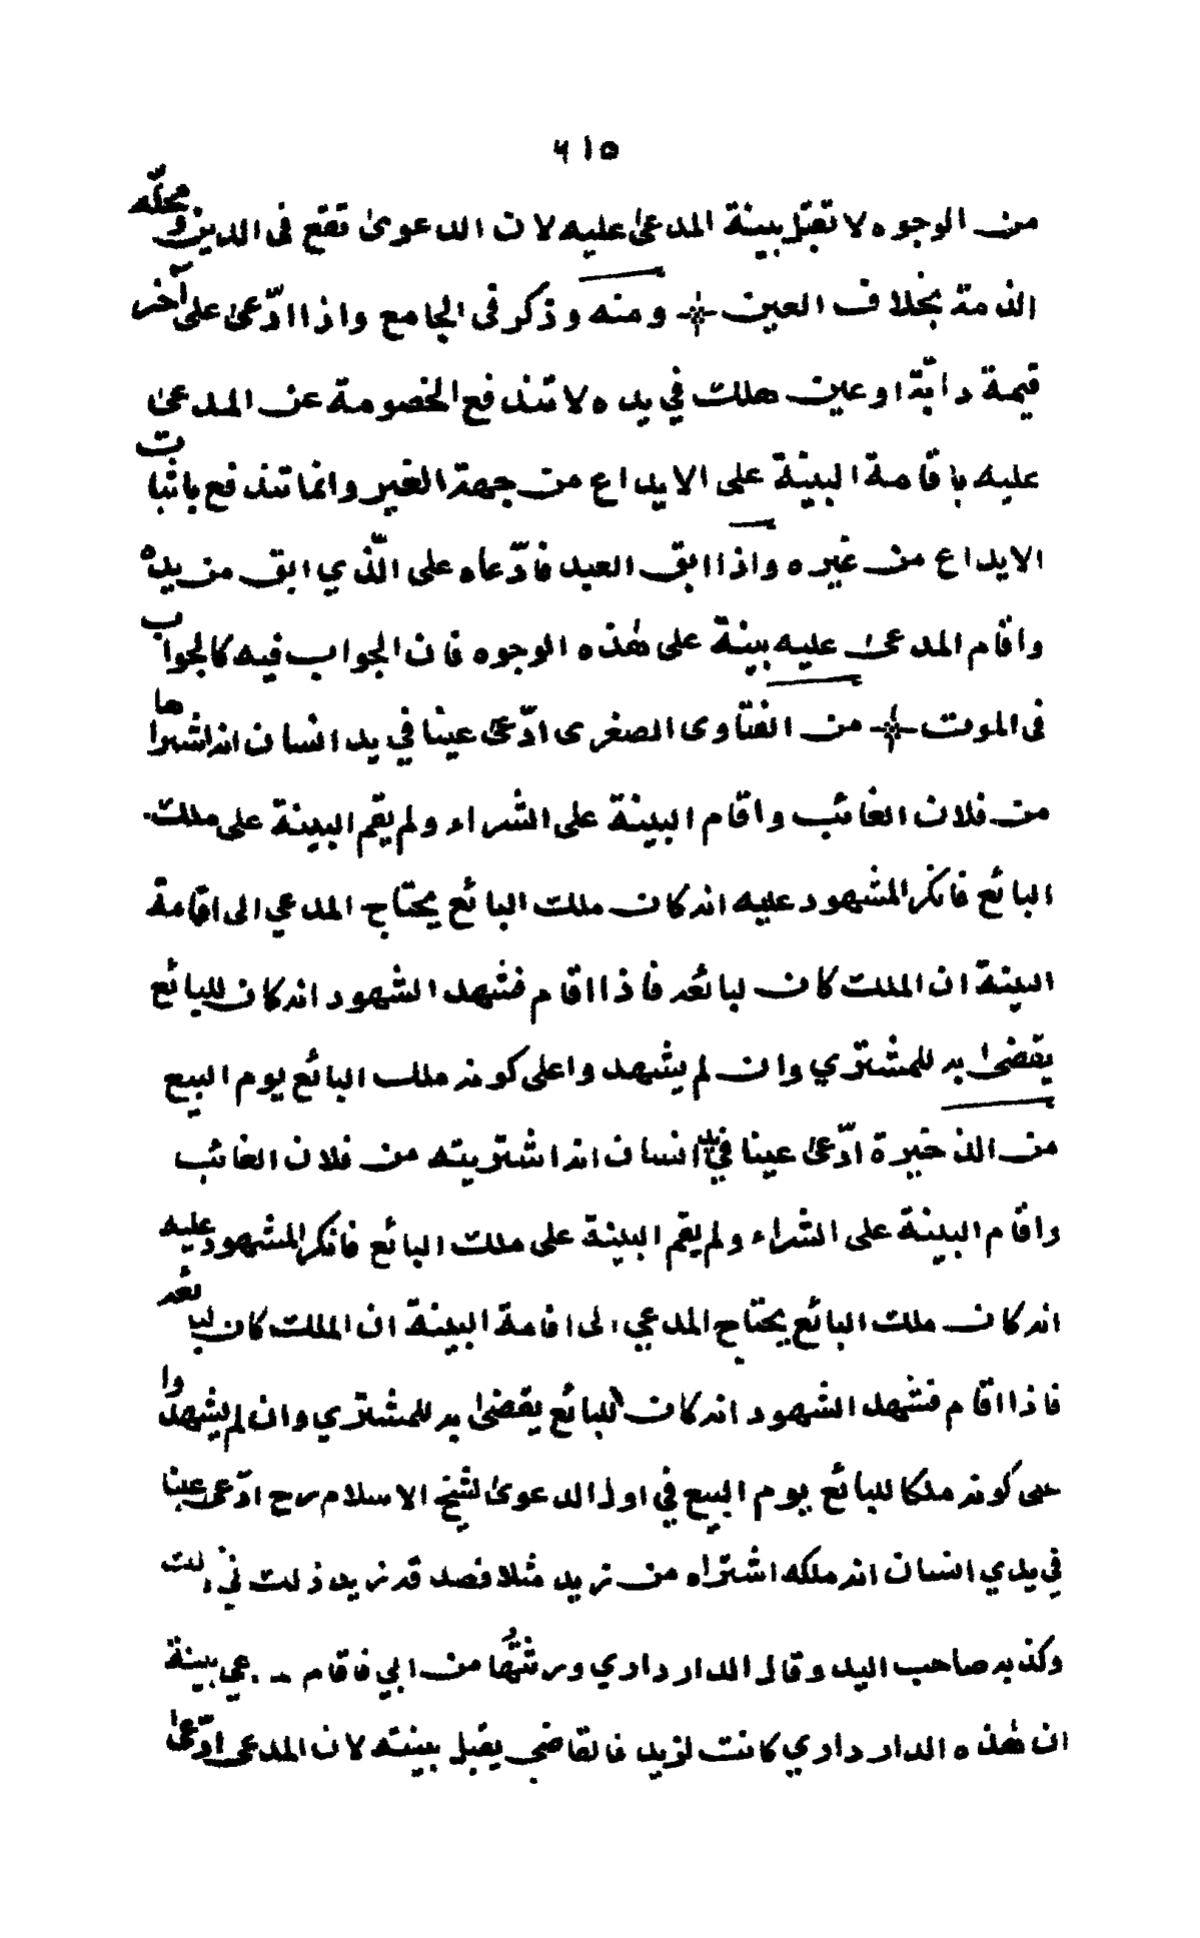 ٦١٥
من الوجوه لا تقبل بينة المدعى عليه لان الدعوى تقع فى الدين ومحلّه
الذمة بخلاف العين ومنه وذكر فى الجامع واذا ادّعى على آخر
قيمة دابّة او عين هلك في يده لا تندفع الخصومة عن المدعى
عليه باقامة البينة على الايداع من جهة الغير وانما تندفع باثبات
الايداع من غيره واذا ابق العبد فادّعاه على الّذي ابق من يده
واقام المدعى عليه بينة على هٰذه الوجوه فان الجواب فيه كالجواب
فى الموت من الفتاوى الصغرى ادّعى عينا في يد انسان انه اشتراها
من فلان الغائب واقام البينة على الشراء ولم يقم البينة على ملك
البائع فانكر المشهود عليه انه كان ملك البائع يحتاج المدعي الى اقامة
البينة ان الملك كان لبائعه فاذا اقام فشهد الشهود انه كان للبائع
يقضى به للمشتري وان لم يشهدوا على كونه ملك البائع يوم البيع
من الذخيرة ادّعى عينا في يد انسان انه اشتريته من فلان الغائب
واقام البينة على الشراء ولم يقم البينة على ملك البائع فانكر المشهود عليه
انه كان ملك البائع يحتاج المدعي الى اقامة البينة ان الملك كان لبائعه
فاذا اقام فشهد الشهود انه كان للبائع يقضى به للمشتري وان لم يشهدوا
على كونه ملكا للبائع يوم البيع في اول الدعوى لشيخ الاسلام رح ادّعى عينا
في يدي انسان انه ملكه اشتراه من زيد مثلا فصدقه زيد ذلك في ذلك
وكذبه صاحب اليد وقال الدار داري ورثتُها من ابي فاقام بينة
ان هٰذه الدار داري كانت لزيد فالقاضي يقبل بينته لان المدعى ادّعى